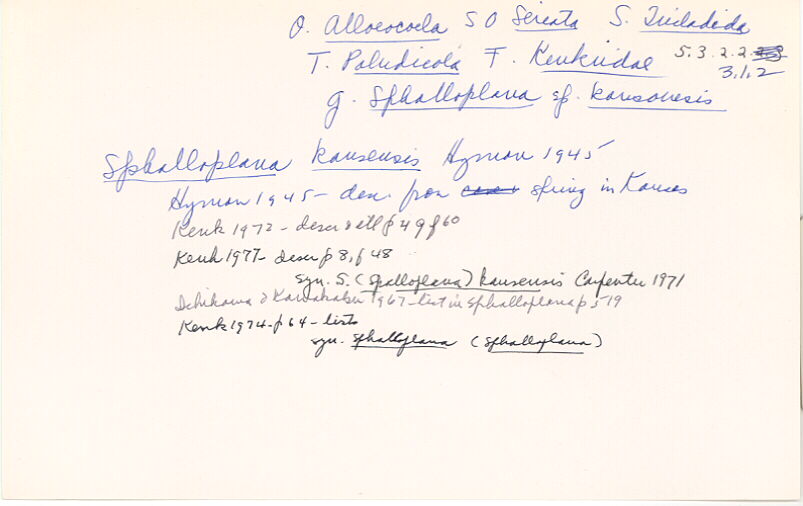 O. Alloeocoela SO Seriata S. Tricladida
T. Paludicola F. Kenkiidae 5.3.2.2.
3.1.2
g. Sphalloplana sp. kansensis
Sphalloplana kansensis Hyman 1945
Hyman 1945 - descr. from spring in Kansas
Kenk 1972 - descr & ill p 49 f 60
Kenk 1977 - descr p 8, f 48
syn. S. (Spalloplana) kansensis Carpenter 1971
Ichikawa & Kawakatsu 1967 - list in sphalloplana p 519
Kenk 1974 - p 64 - lists
syn. Sphalloplana (Sphalloplana)